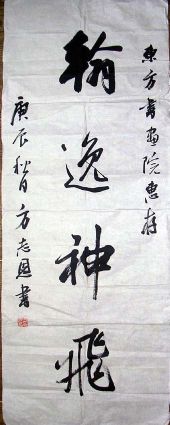 東方書画院惠存
翰逸神飛
庚辰秋月方志恩書